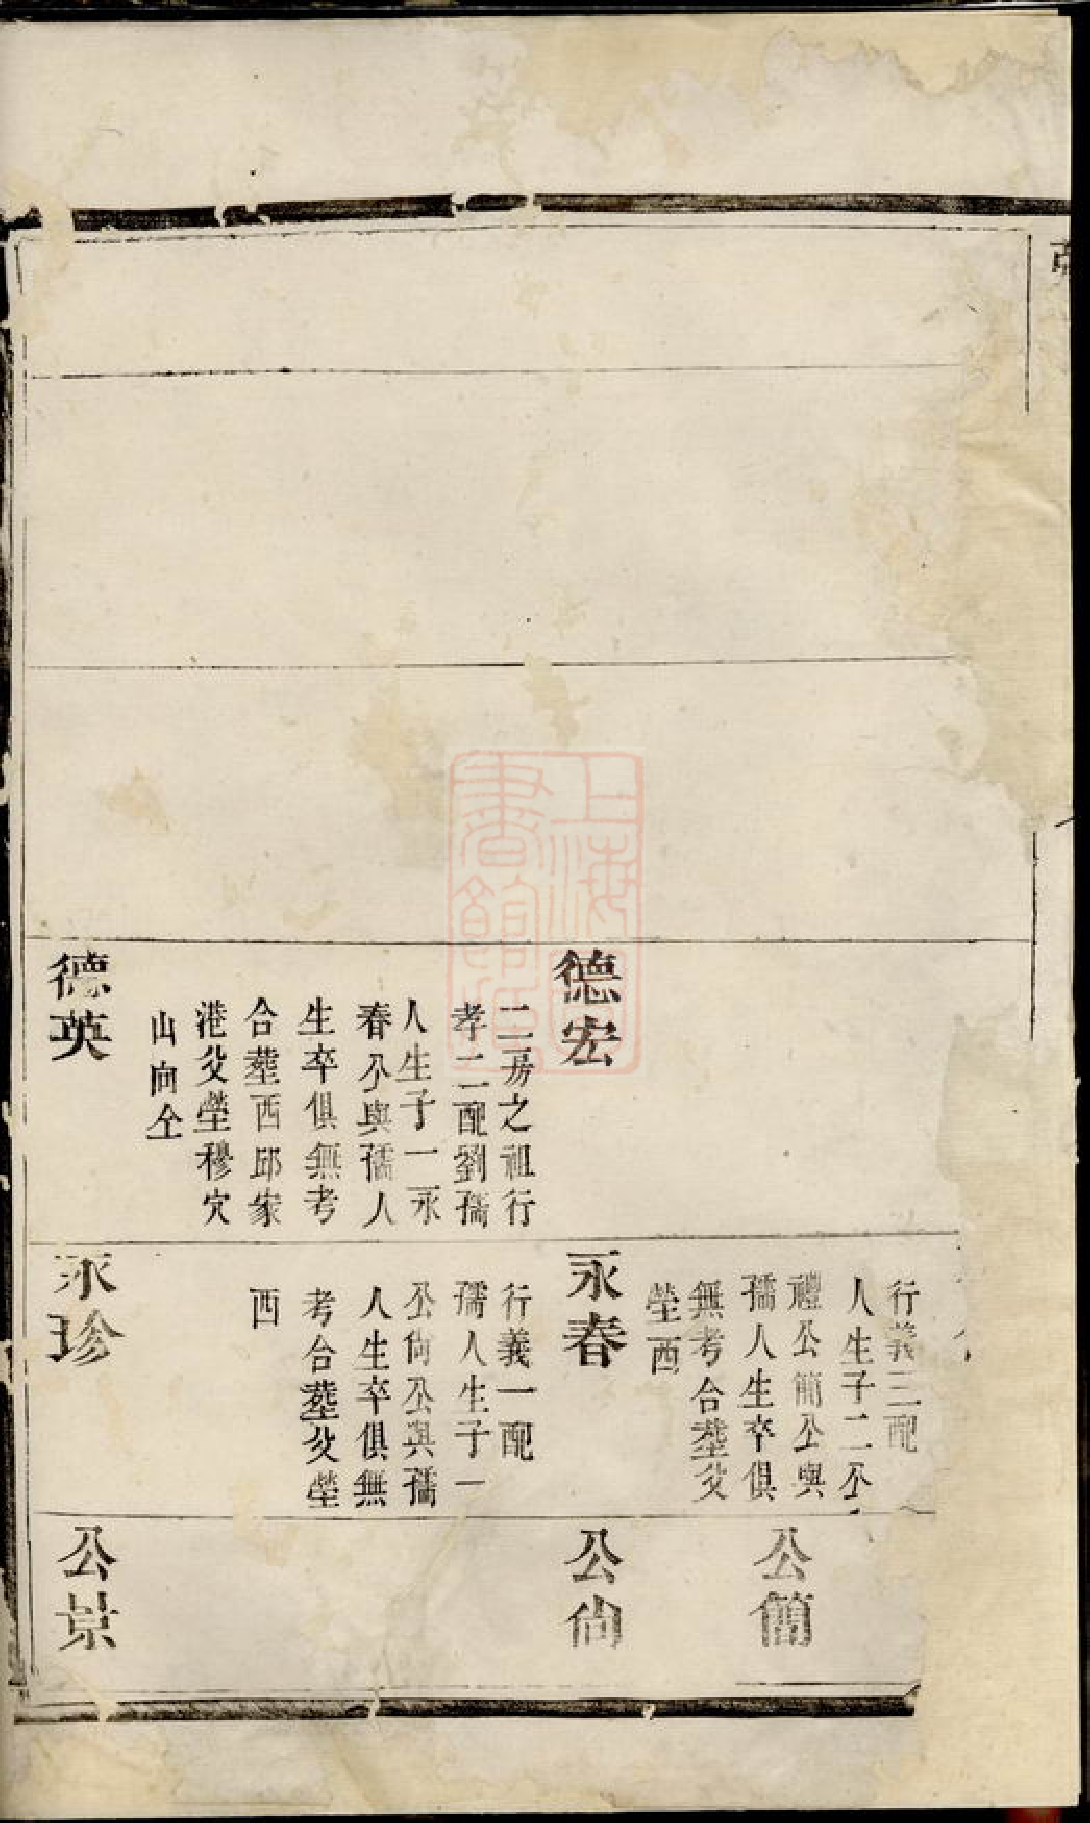 德宏
二房之祖行
孝二配劉孺
人生子一永
春公與孺人
生卒俱無考
合塟西邱家
港父塋穆穴
山向仝
德英
行義三配
人生子二公
禮公簡公與
孺人生卒俱
無考合塟父
塋西
永春
行義一配
孺人生子一
公尙公與孺
人生卒俱無
考合塟父塋
西
永珍
公簡
公尙
公景
上海圖書館藏